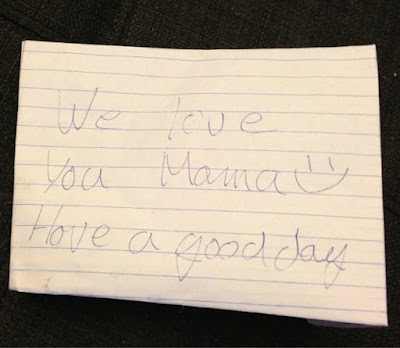 We love
You Mama
Have a good day